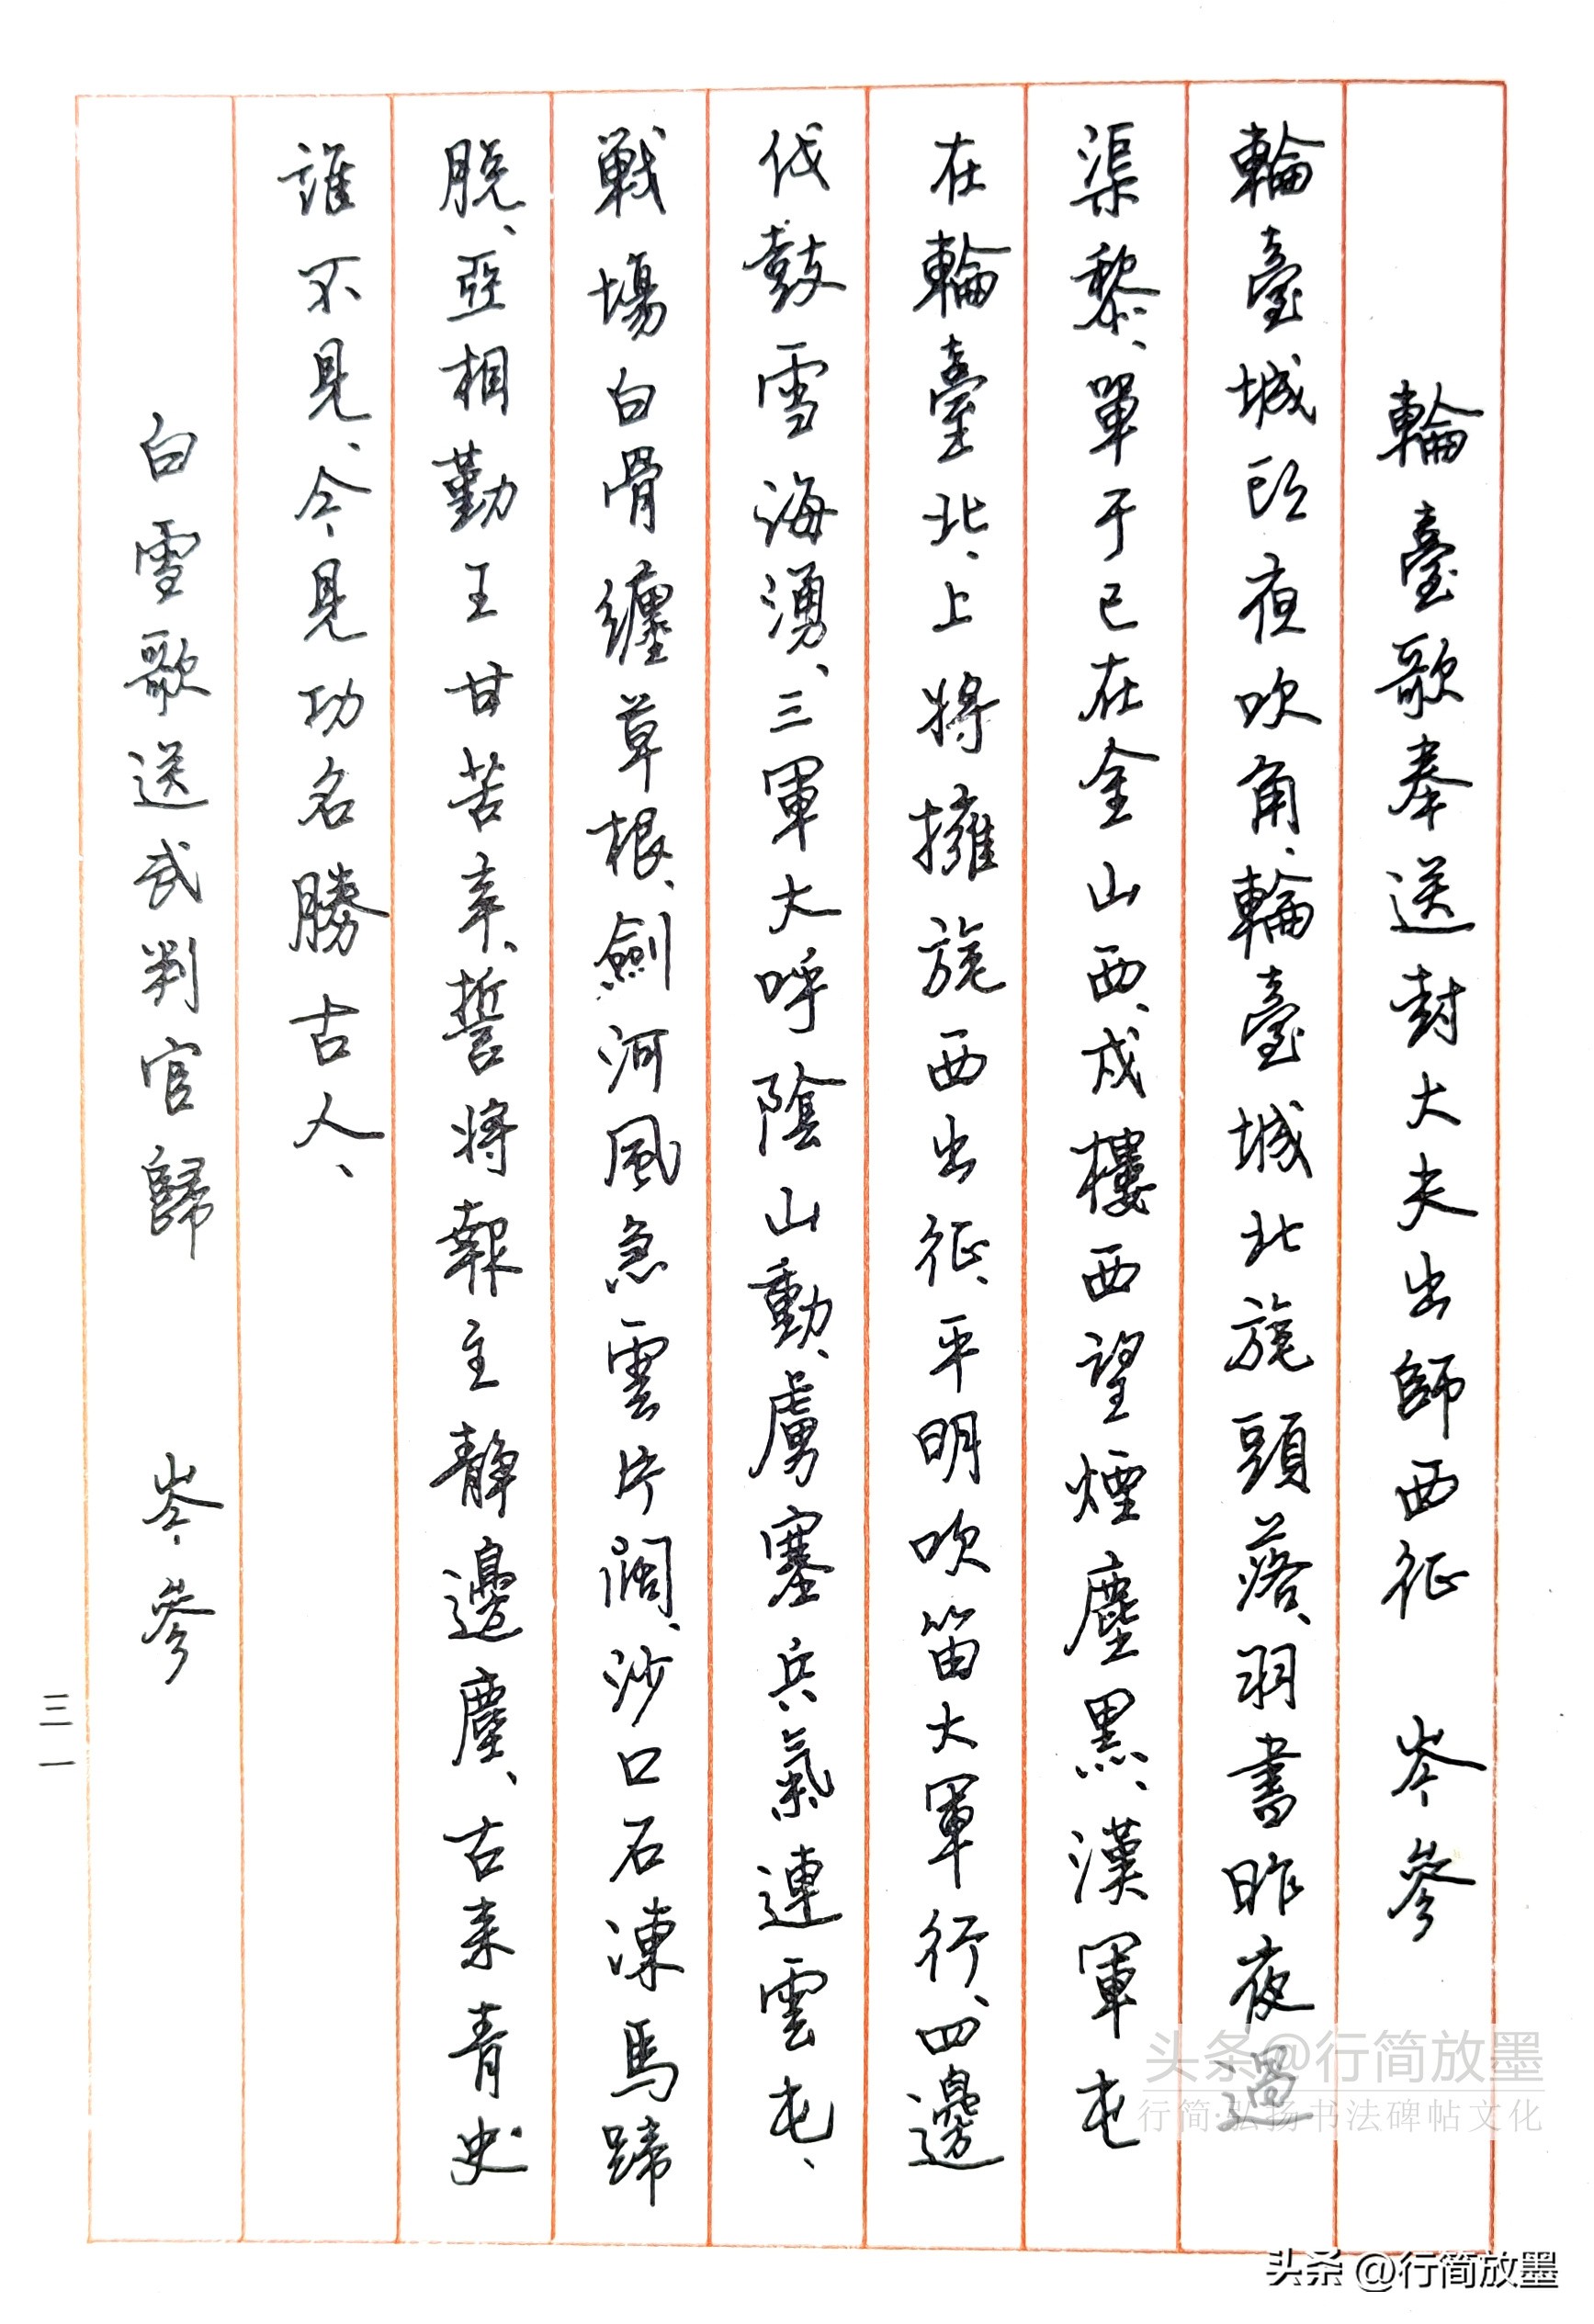 輪臺歌奉送封大夫出師西征 岑參
輪臺城頭夜吹角、輪臺城北旄頭落、羽書昨夜過
渠黎、單于已在金山西、戍樓西望煙塵黑、漢軍屯
在輪臺北、上將擁旄西出征、平明吹笛大軍行、四邊
伐鼓雪海湧、三軍大呼陰山動、虜塞兵氣連雲屯、
戰場白骨纏草根、劍河風急雲片闊、沙口石凍馬蹄
脫、亞相勤王甘苦辛、誓將報主靜邊塵、古来青史
誰不見、今見功名勝古人、
白雪歌送武判官歸 岑參
三一
头条@行简放墨
行简·弘扬书法碑帖文化
头条 @行简放墨